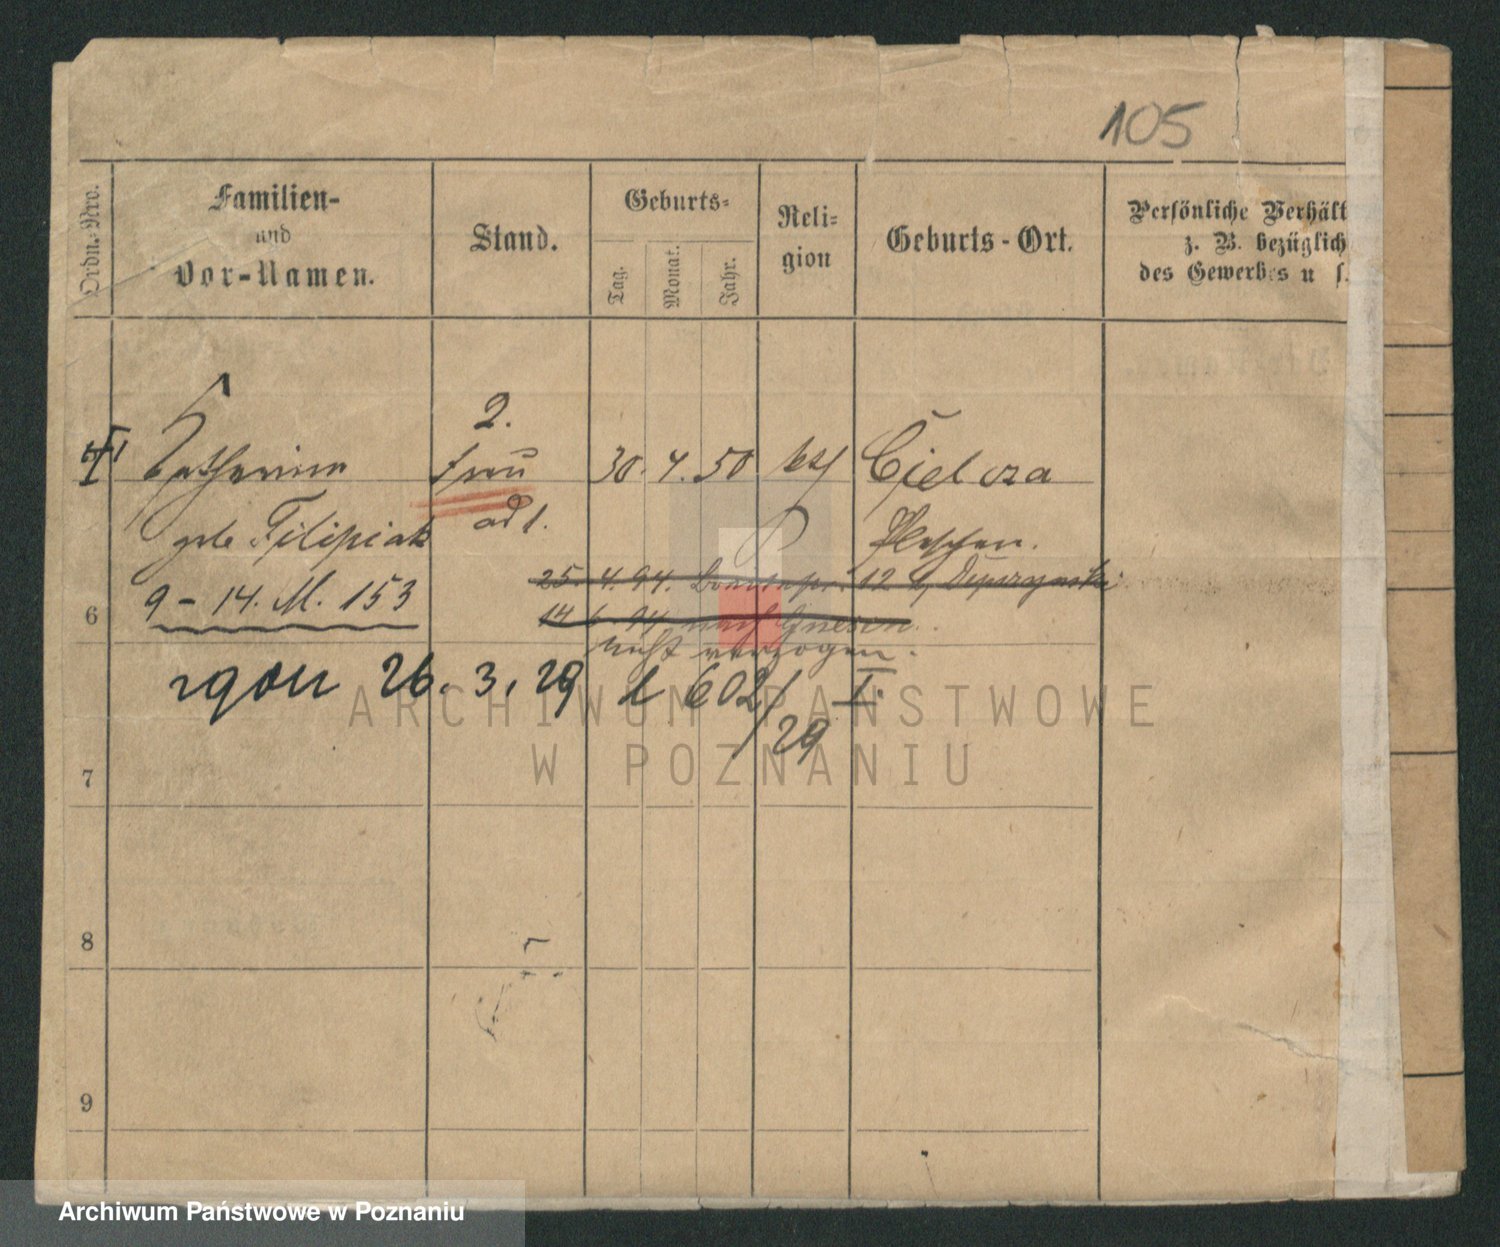 105
Ordn.-Nro.
Familien-
und
Vor-Namen.
Stand.
Geburts-
Tag.
Monat.
Jahr.
Reli-
gion
Geburts-Ort.
Persönliche Verhält
z. B. bezüglich
des Gewerbes u s.
2.
Catharina Frau 30. 4. 50 kath Cielcza
geb Filipiak ad 1. Pleschen.
25. 4. 94. 12 b,
9 – 14. M. 153
14 94 nach Gnesen
6
nicht verzogen.
zgon 26. 3. 29 l 602/29 I.
7
8
9
ARCHIWUM PAŃSTWOWE
W POZNANIU
Archiwum Państwowe w Poznaniu